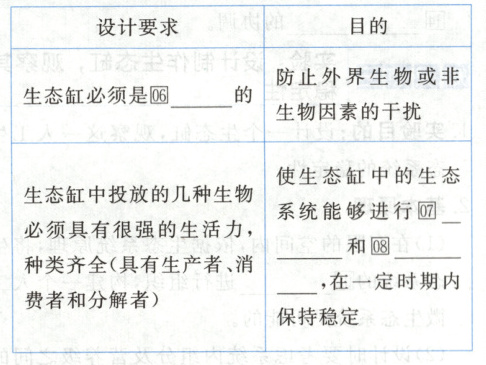 设计要求
目的
生态缸必须是06______的
防止外界生物或非
生物因素的干扰
生态缸中投放的几种生物
必须具有很强的生活力，
种类齐全(具有生产者、消
费者和分解者)
使生态缸中的生态
系统能够进行07__
______和08______
____，在一定时期内
保持稳定